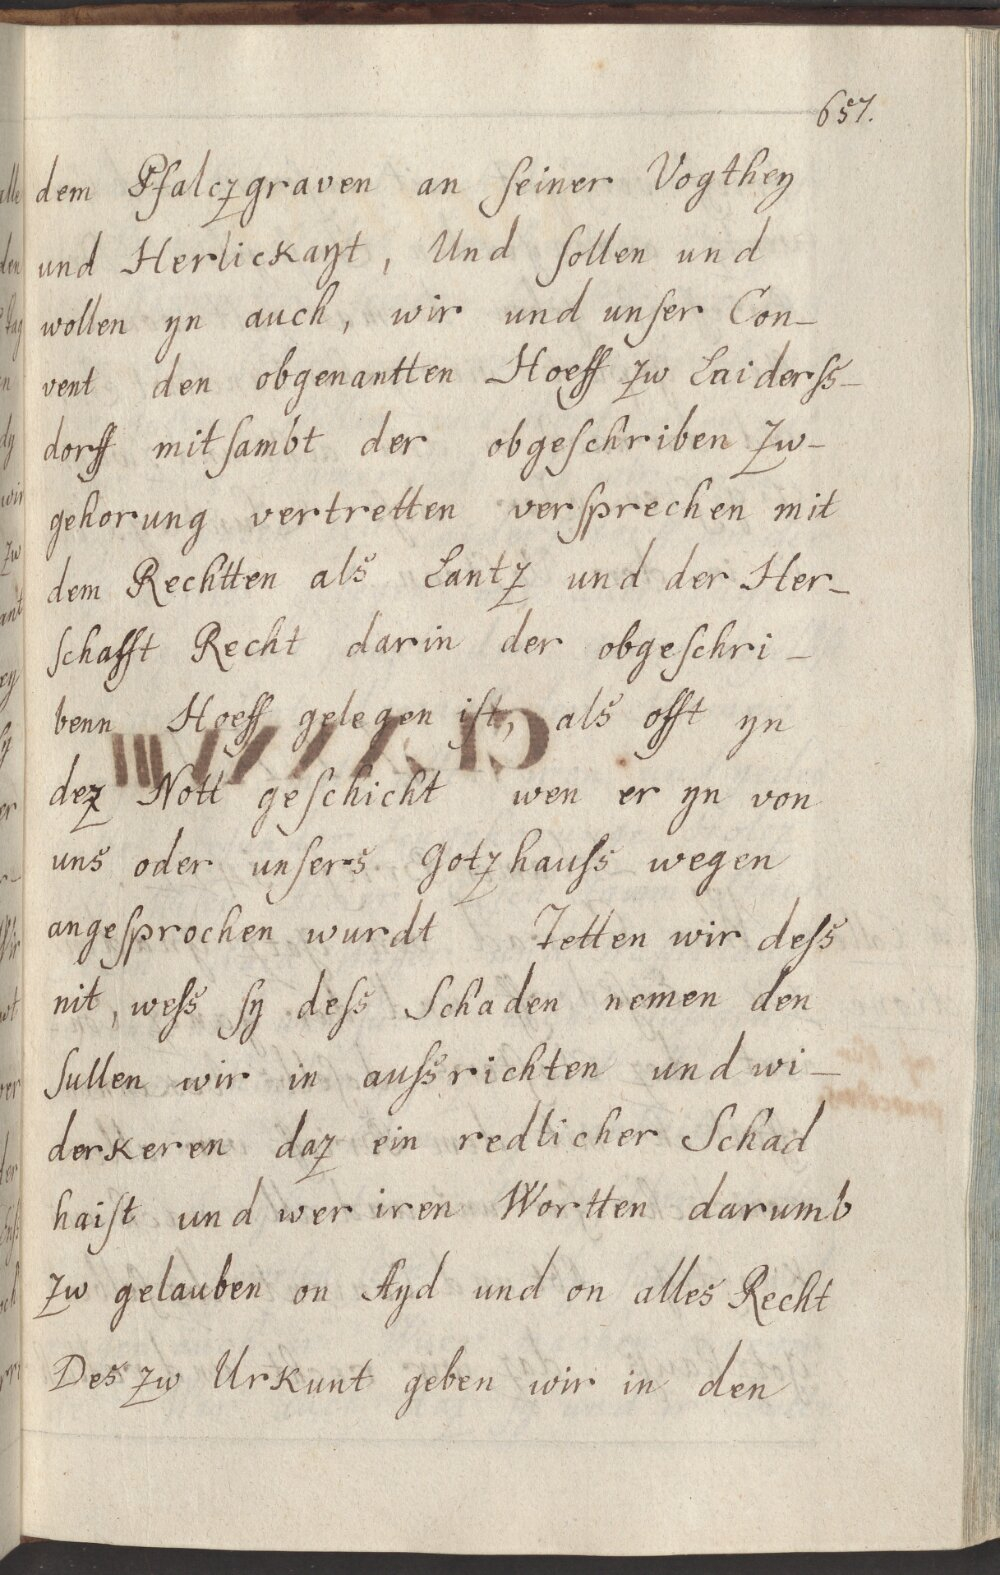 657.
dem Pfalczgraven an ſeiner Vogthey
und Herlickayt, Und ſollen und
wollen yn auch, wir und unſer Con-
vent den obgenantten Hoeff zw Laiderſs-
dorff mitſambt der obgeſchriben Zw-
gehorung vertretten verſprechen mit
dem Rechtten als Lantz und der Her-
ſchafft Recht darin der obgeſchri-
benn Hoeff gelegen iſt, als offt yn
dez Nott geſchicht wen er yn von
uns oder unſers Gotzhauſs wegen
angeſprochen wurdt Tetten wir deſs
nit, weſs ſy deſs Schaden nemen den
ſullen wir in auſsrichten und wi-
derkeren daz ein redlicher Schad
haiſt und wer iren Wortten darumb
zw gelauben on Ayd und on alles Recht
Des zw Urkunt geben wir in den